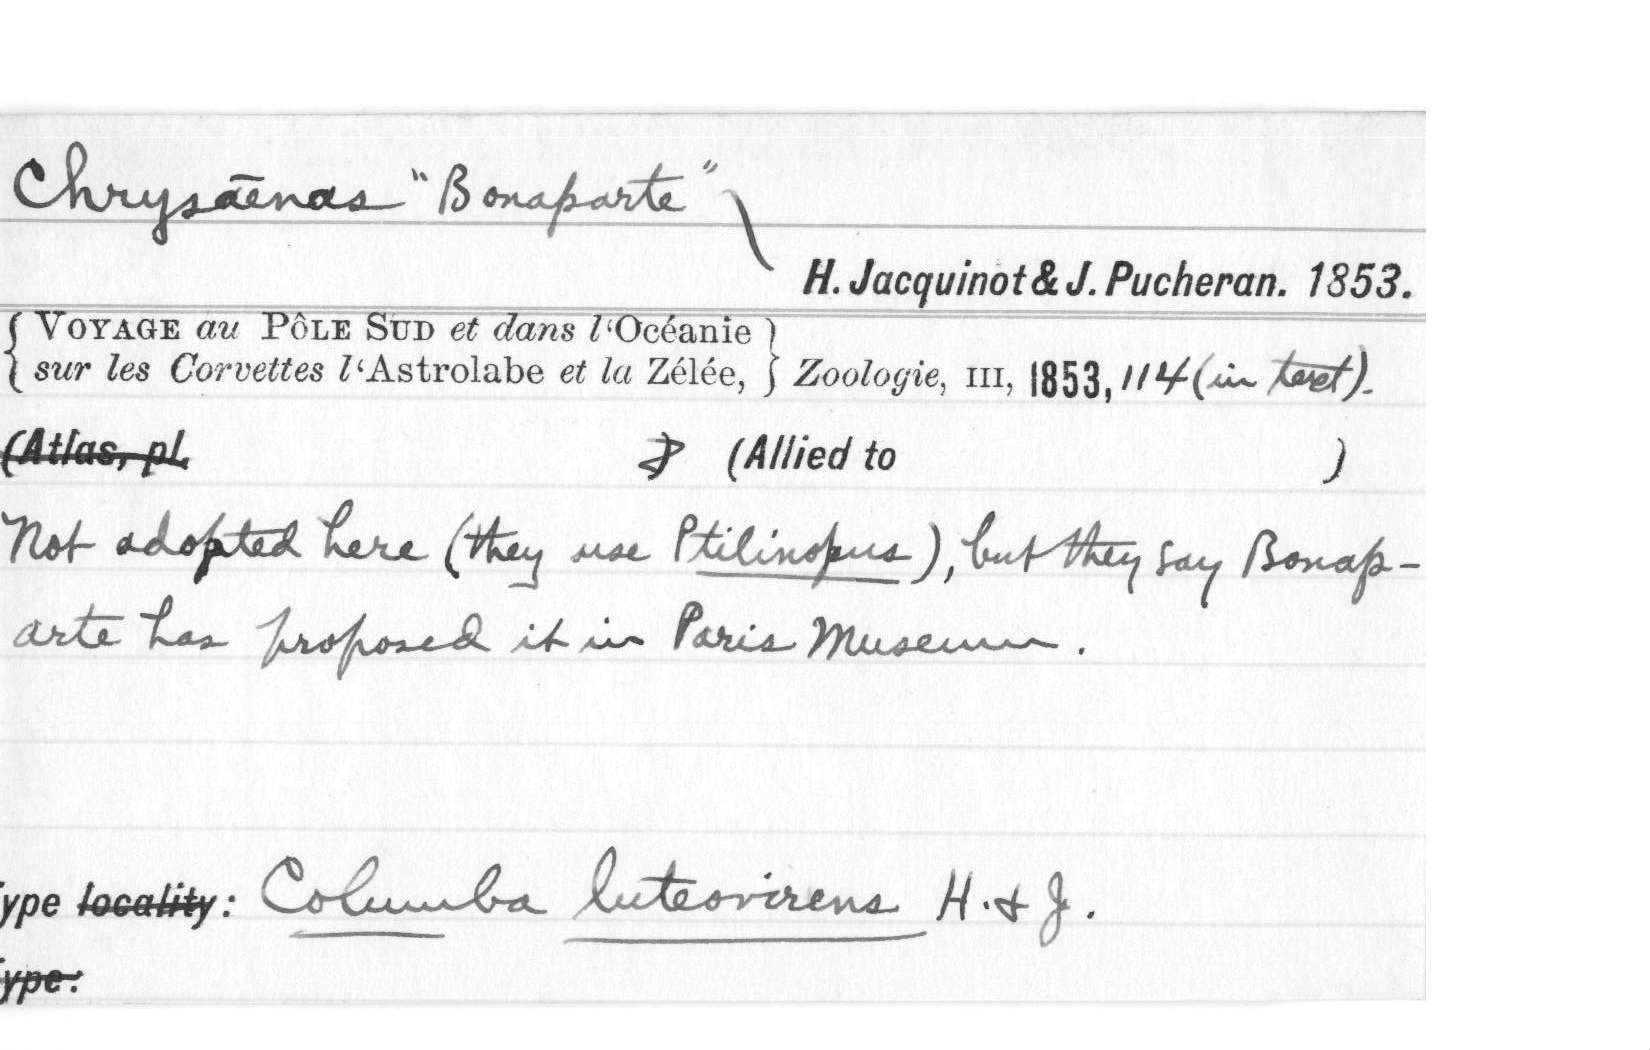 Chrysāenas "Bonaparte"
H. Jacquinot & J. Pucheran. 1853.
{ VOYAGE au PÔLE SUD et dans l‘Océanie }
{ sur les Corvettes l‘Astrolabe et la Zélée, } Zoologie, III, 1853, 114 (in text).
(Atlas, pl. ) (Allied to )
Not adopted here (they use Ptilinopus), but they say Bonap-
arte has proposed it in Paris Museum.
ype locality: Columba luteovirens H. & J.
ype: